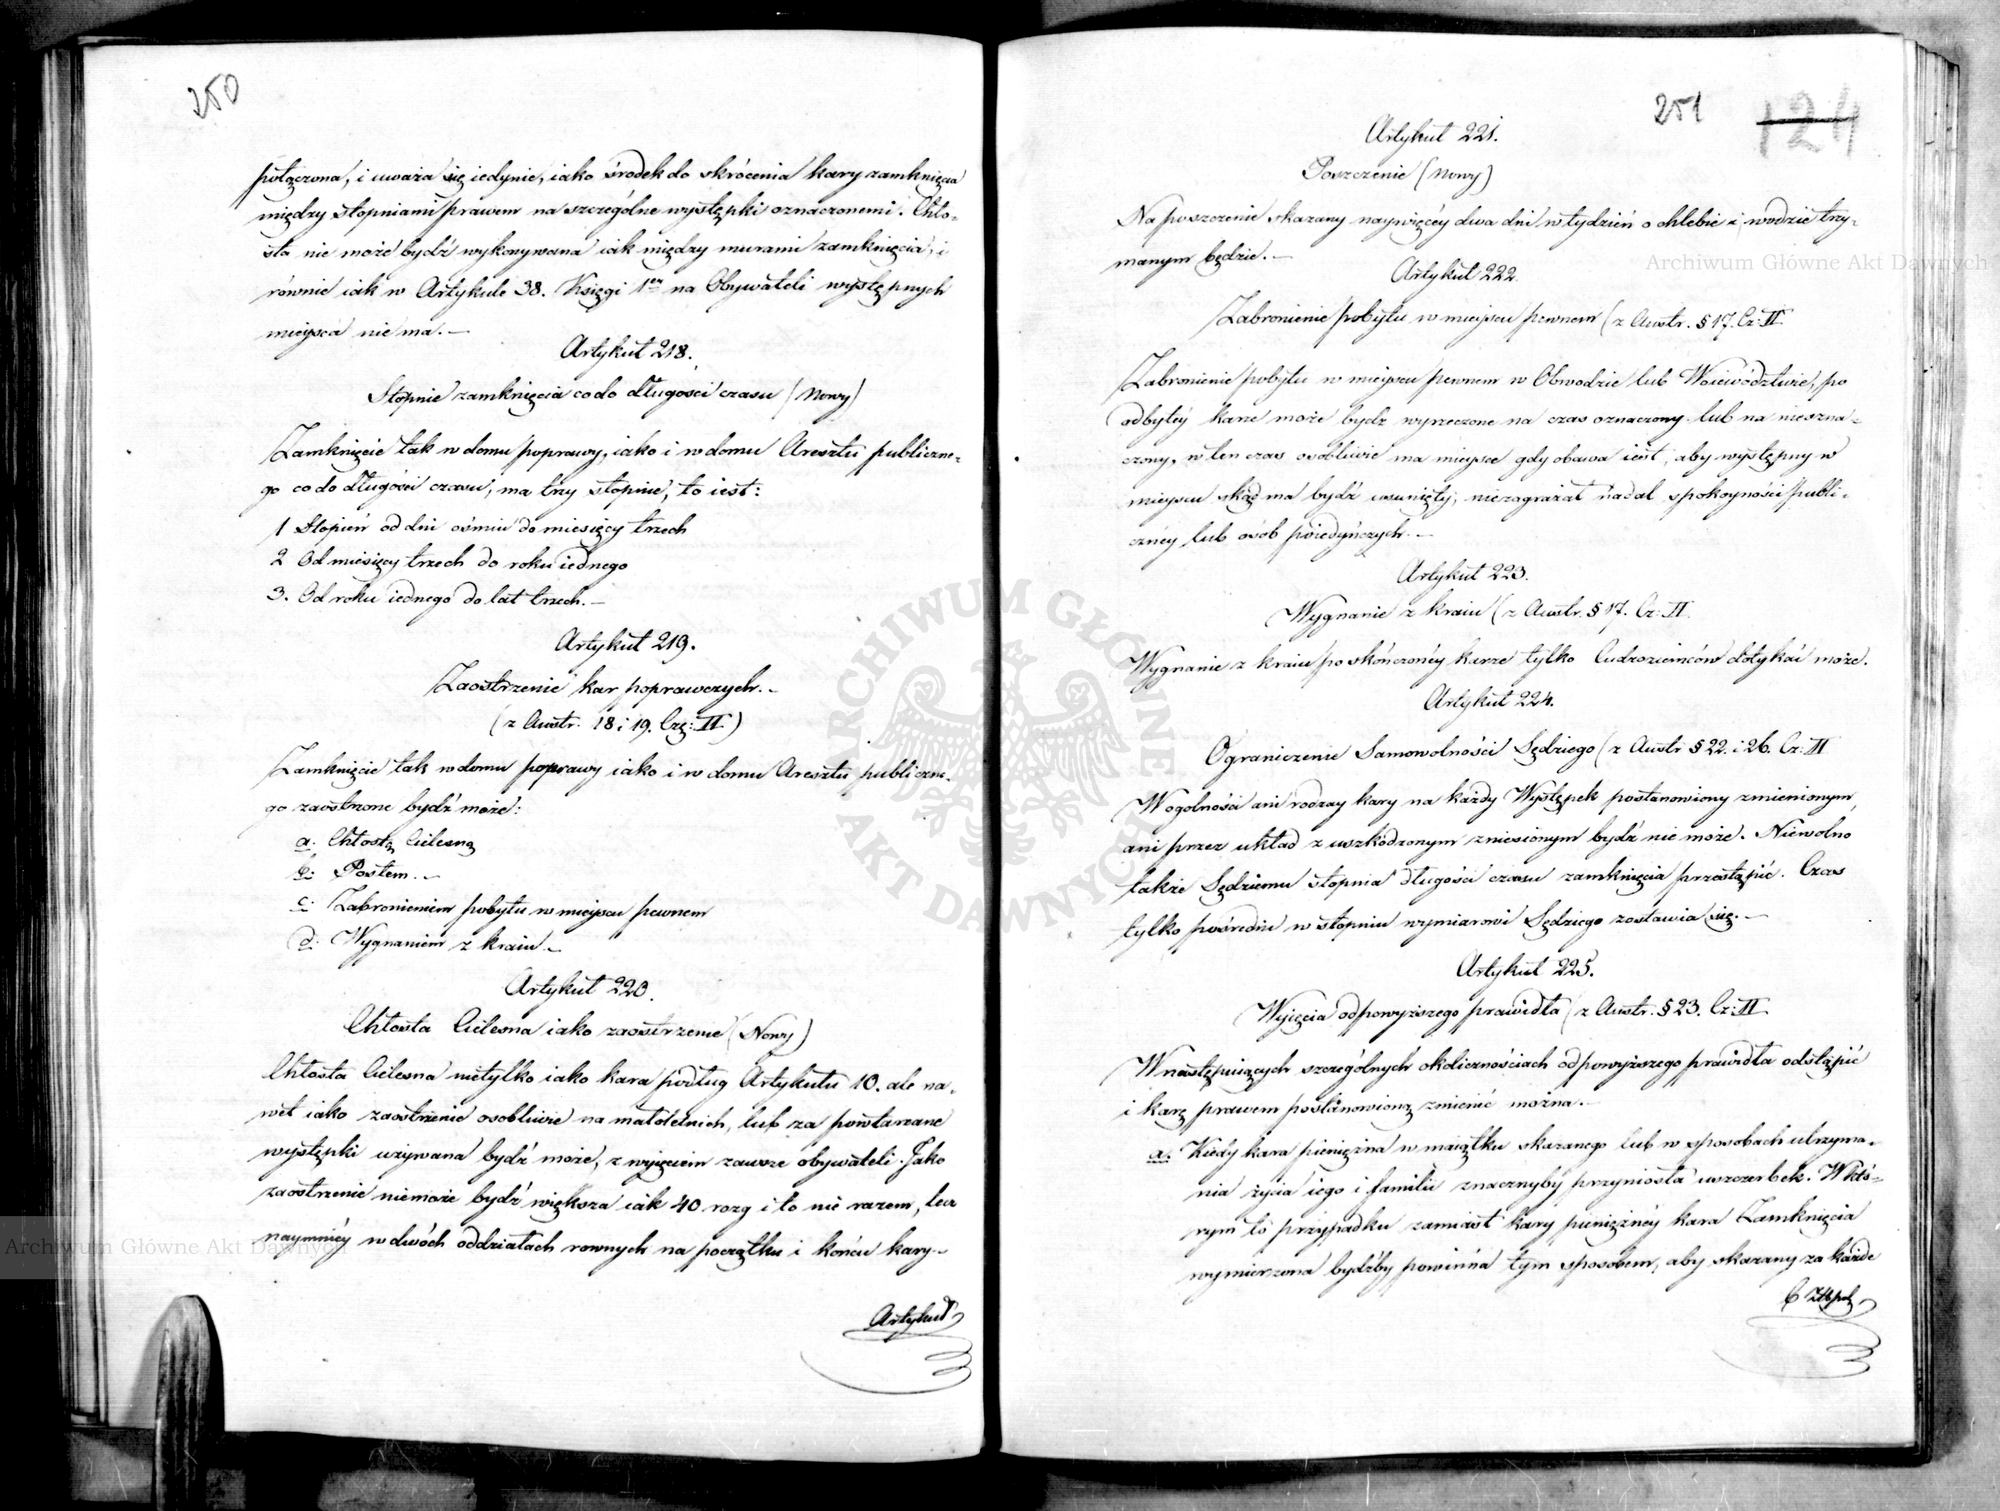 250
połączona, i uważa się iedynie, iako środek do skrócenia kary zamknięcia
między stopniami prawem na szczególne występki oznaczonemi. Chło-
sta nie może bydź wykonywana iak między murami zamknięcia, i
równie iak w Artykule 38. Księgi 1er na Obywateli występnych
mieysca nie ma. —
Artykuł 218.
Stopnie zamknięcia co do długości czasu (Nowy)
Zamknięcie tak w domu poprawy, iako i w domu Aresztu publiczne-
go co do długości czasu, ma trzy stopnie, to iest:
1 Stopień od dni ośmiu do miesięcy trzech
2 Od miesięcy trzech do roku iednego
3. Od roku iednego do lat trzech. —
Artykuł 219.
Zaostrzenie kar poprawczych. —
(z Austr. 18 i 19. Czę: II)
Zamknięcie tak w domu poprawy iako i w domu Aresztu publiczne-
go zaostrzone bydź może:
a. Chłostą Cielesną
b. Postem. —
c. Zabronieniem pobytu w mieyscu pewnem
d. Wygnaniem z kraiu —
Artykuł 220.
Chłosta Cielesna iako zaostrzenie (Nowy)
Chłosta Cielesna nietylko iako kara podług Artykułu 10. ale na-
wet iako zaostrzenie osobliwie na małoletnich, lub za powtarzane
występki używana bydź może, z wyięciem zawsze obywateli. Jako
zaostrzenie niemoże bydź większa iak 40 rozg i to nie razem, lecz
naymniéy w dwóch oddziałach rownych na początku i końcu kary. —
Artykuł
251
124
Artykuł 221.
Poszczenie (Nowy)
Na poszczenie skazany naywięcéy dwa dni w tydzień o chlebie i wodzie trzy-
manym będzie. —
Artykuł 222.
Zabronienie pobytu w mieyscu pewnem (z Austr. § 17. Cz: II
Zabronienie pobytu w mieyscu pewnem w Obwodzie lub Woiewództwie, po
odbytéy karze może bydź wyrzeczone na czas oznaczony lub na nieozna-
czony, w ten czas osobliwie ma mieysce gdy obawa iest, aby występny w
mieyscu skąd ma bydź usunięty, niezagrażał nadal spokoyności publi-
cznéy lub osób poiedyńczych. —
Artykuł 223.
Wygnanie z kraiu (z Austr. § 17. Cz: II
Wygnanie z kraiu po skończonéy karze tylko Cudzoziemców dotykać może.
Artykuł 224.
Ograniczenie Samowolności Sędziego (z Austr § 22. i 26. Cz: II
W ogolności ani rodzay kary na każdy Występek postanowiony zmienionym,
ani przez układ z uszkodzonym zniesionym bydź nie może. Niewolno
także Sędziemu stopnia długości czasu zamknięcia przestąpić. Czas
tylko pośredni w stopniu wymiarowi Sędziego zostawia się. —
Artykuł 225.
Wyięcia od powyższego prawidła (z Austr. § 23. Cz: II
W następuiących szczególnych okolicznościach od powyższego prawidła odstąpić
i karę prawem postanowioną zmienić można. —
a. Kiedy kara pieniężna w maiątku skazanego lub w sposobach utrzyma-
nia życia iego i familii znacznyby przyniosła uszczerbek. W któ-
rym to przypadku zamiast kary pieniężnéy kara Zamknięcia
wymierzona bydźby powinna tym sposobem, aby skazany za każde
6 Złłpol
Archiwum Główne Akt Dawnych
Archiwum Główne Akt Dawnych
ARCHIWUM GŁÓWNE AKT DAWNYCH